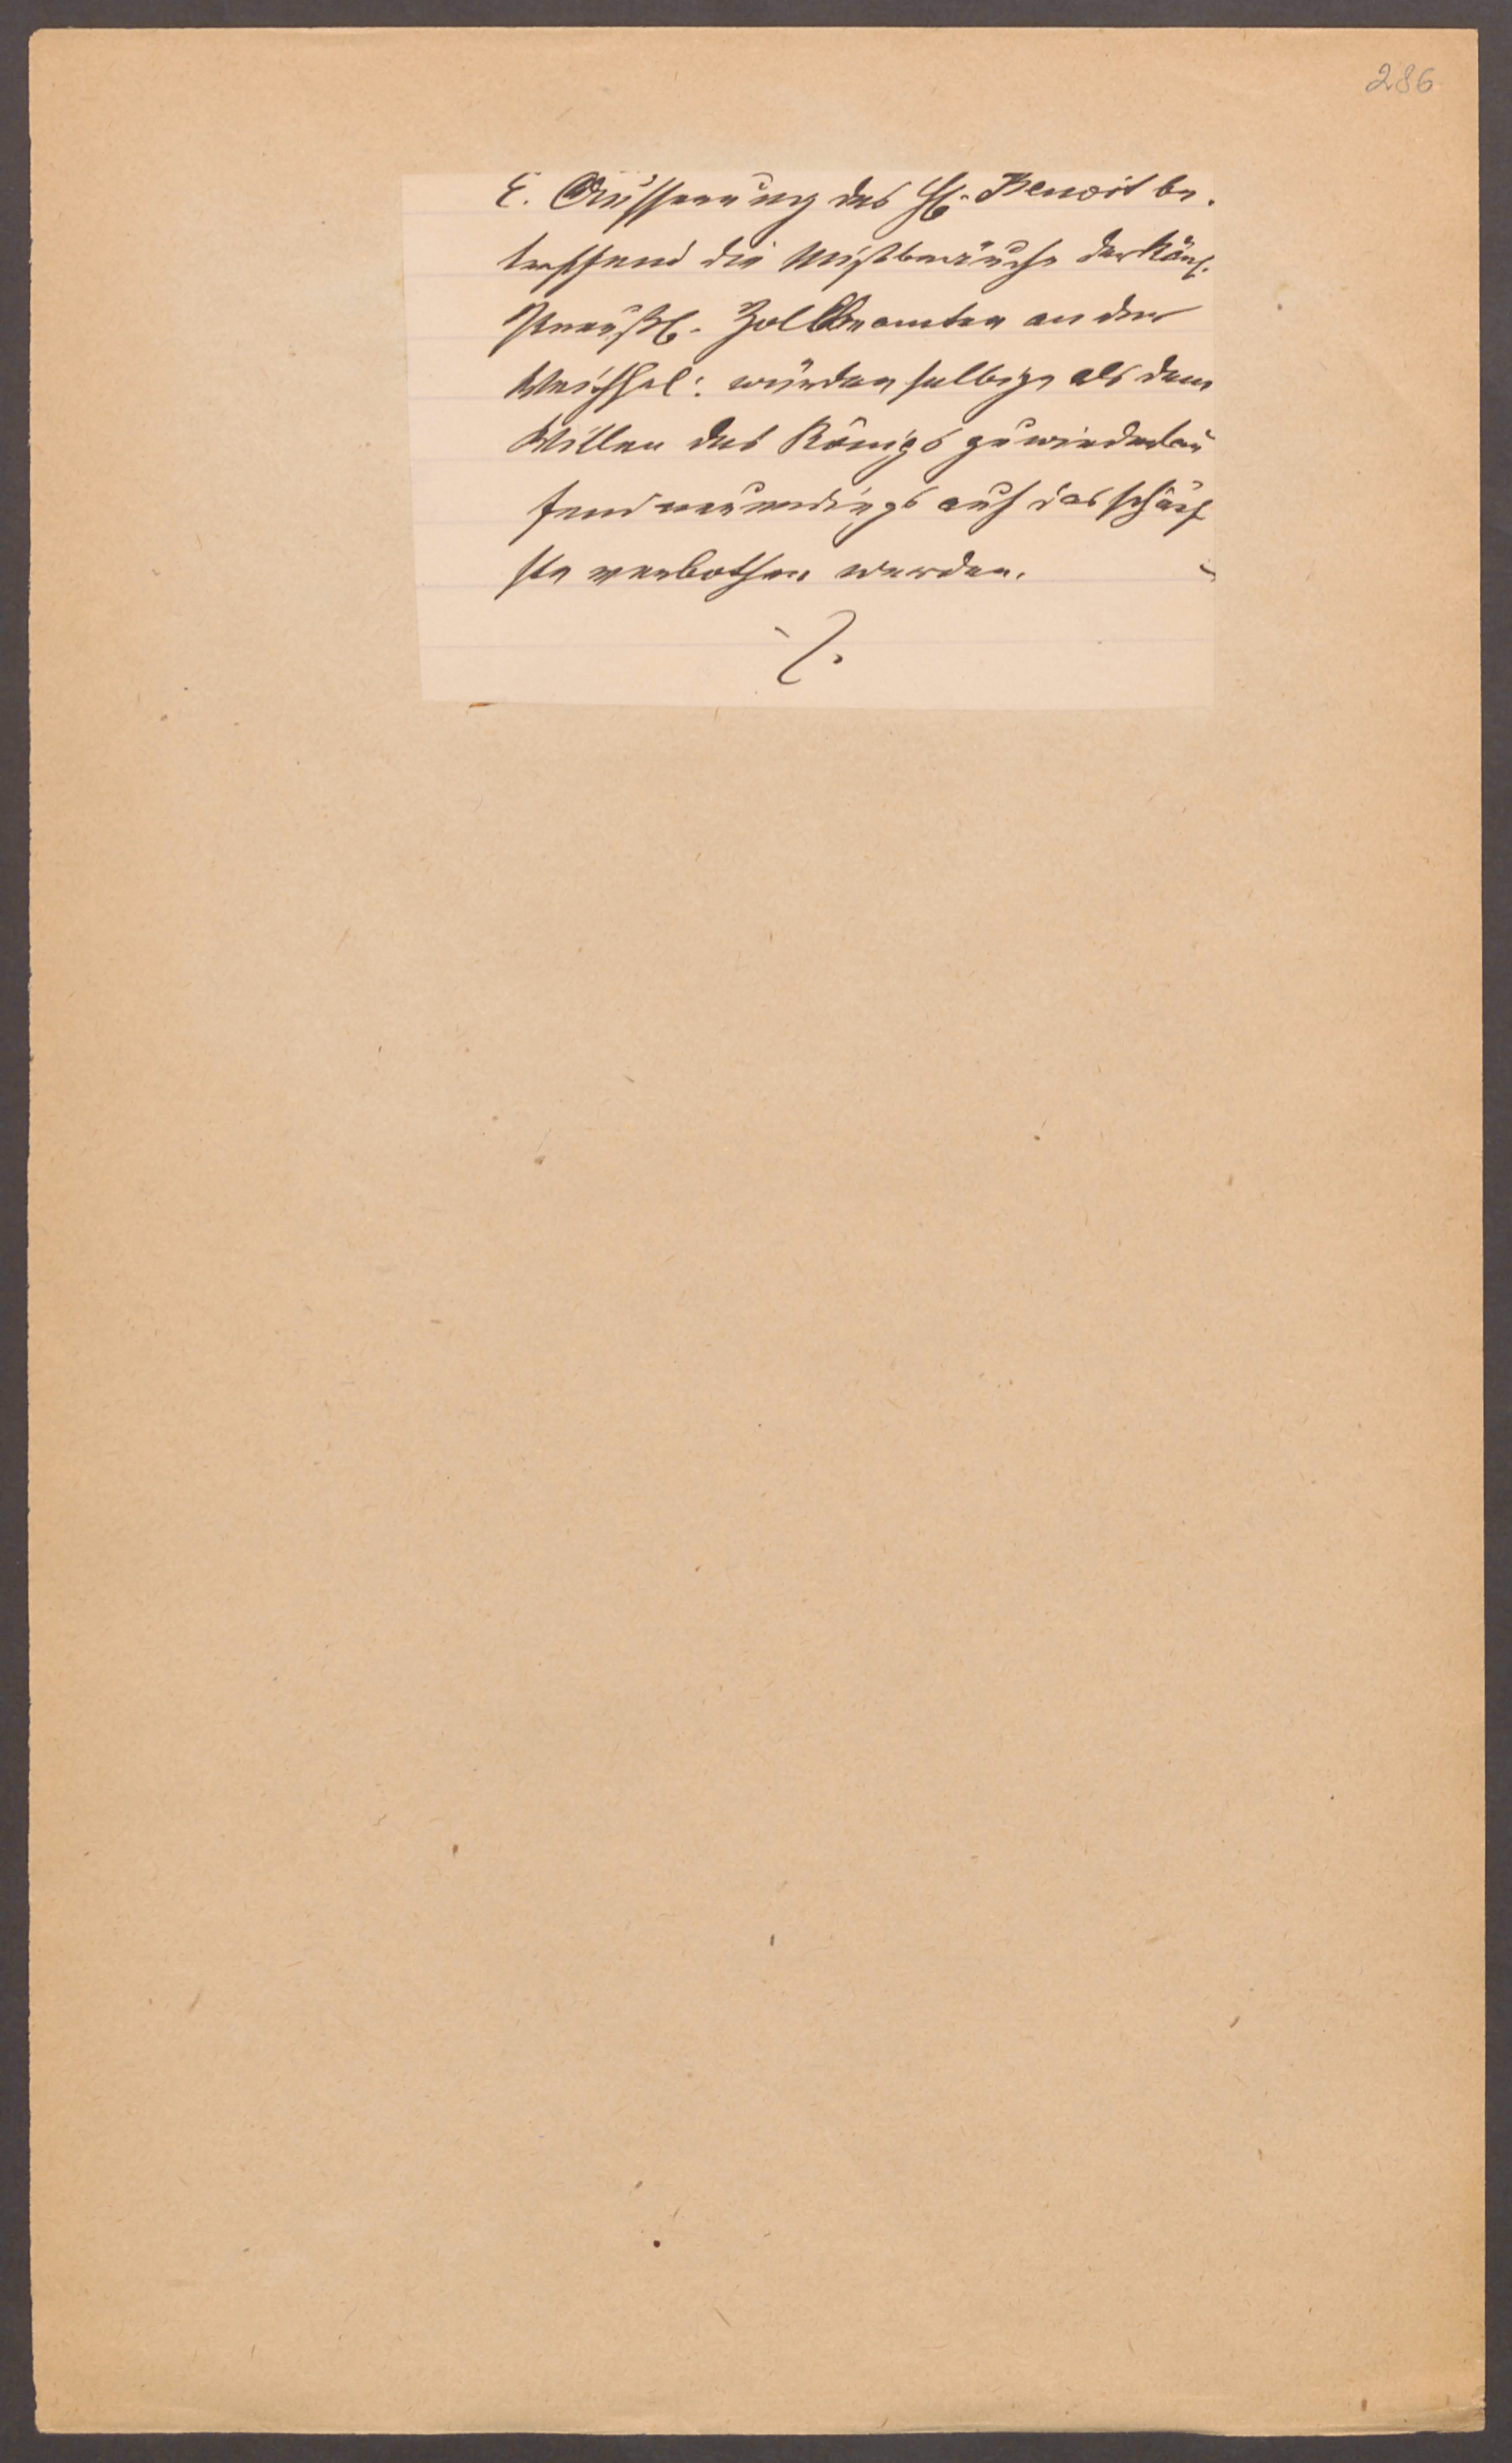 286
E. Äusserung des H. Benoit be.
treffend die Mißbräuche der Kön.
Preußl. Zollbeamten an der
Weichsel: würden selbige als dem
Willen des Königs zuwiderlau
fend neuerdings auf das schärf
ste verbothen werden.